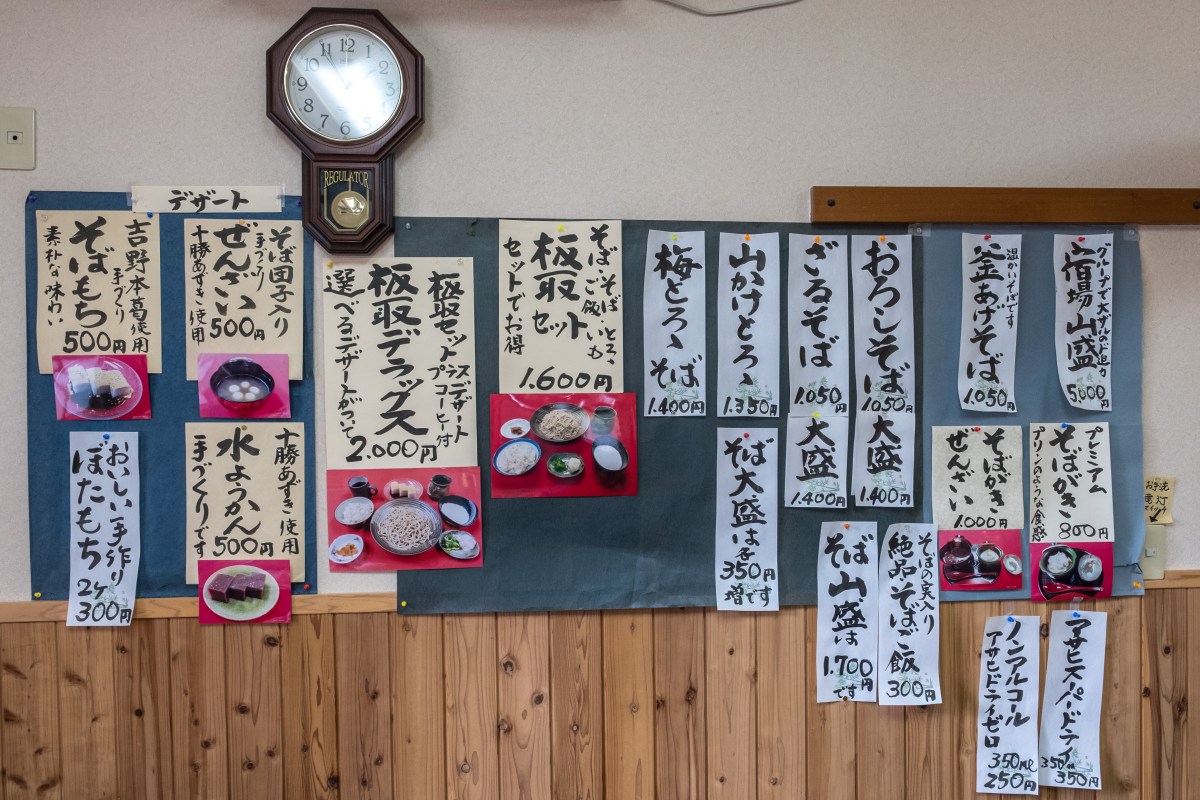 デザート
吉野本葛使用
手づくり
そばもち
500円
素朴な味わい
そば団子入り
手づくり
ぜんざい
500円
十勝あずき使用
おいしい手作り
ぼたもち
2ケ
300円
十勝あずき使用
水ようかん
500円
手づくりです
REGULATOR
12
1
2
3
4
5
6
7
8
9
10
11
板取セットプラスデザート
コーヒー付
板取デラックス
2.000円
選べるデザートがついて
そば とろろ
そばご飯 いも
板取セット
セットでお得
1.600円
梅とろろそば
1.400円
山かけとろろ
1.350円
ざるそば
1.050
大盛
1.400円
おろしそば
1.050
大盛
1.400円
温かいそばです
釜あげそば
1.050
グループで大ザルのド迫力
宿場山盛
5,000円
そば大盛は
350円
増です
そば山盛は
1.700円
です
そばの実入り
絶品そばご飯
300円
そばがき
ぜんざい
1.000円
プレミアム
そばがき
800円
プリンのような食感
お手洗
電灯
ノンアルコール
アサヒドライゼロ
350ml
250円
アサヒスーパードライ
350ml
350円